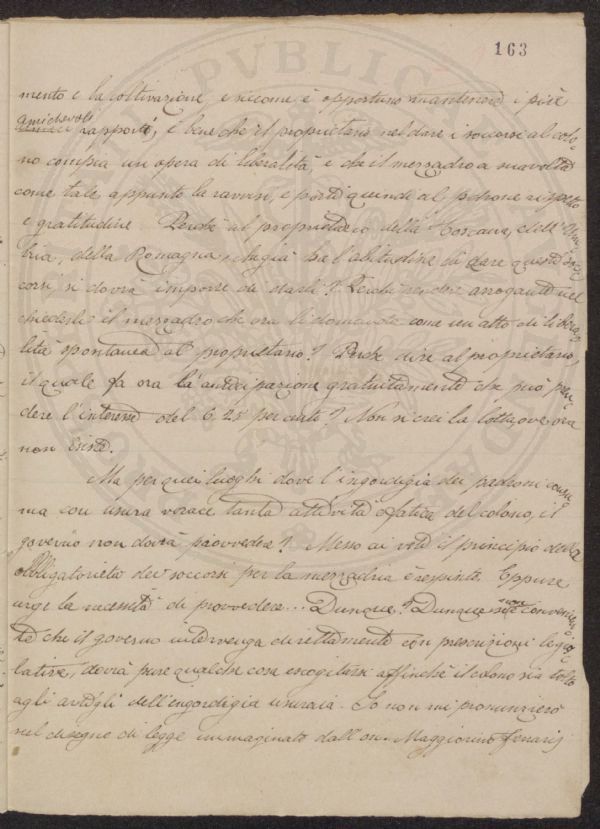 163
mento e la coltivazione, e siccome è opportuno mantenere i più
amichevoli
rapporti, è bene che il proprietario nel dare i soccorsi al colo-
no compia un opera di liberalità, e che il mezzadro a sua volta
come tale appunto la ravvisi, e porti quindi al padrone rispetto
e gratitudine. Perchè al proprietario della Toscana, dell'Um-
bria, della Romagna che già ha l'abitudine di dare questi soc-
corsi si dovrà imporre di darli? Perchè rendere arrogante nel
chiederli il mezzadro che ora li domanda come un atto di libera-
lità spontanea al proprietario? Perchè dire al proprietario,
il quale fa ora la anticipazione gratuitamente che può pren-
dere l'interesse del 6,25 per cento? Non si crei la lotta, ove ora
non esiste.
Ma per quei luoghi dove l'ingordigia dei padroni consu-
ma con usura vorace tanta attività e fatica del colono, il
governo non dovrà provvedere? Messo ai voti il principio della
obbligatorietà dei soccorsi per la mezzadria è respinto. Eppure
urge la necessità di provvedere... Dunque? Dunque non conviene
che il governo intervenga direttamente con prescrizioni legis-
lative, dovrà pure qualche cosa escogitarsi affinchè il colono sia tolto
agli artigli dell'engordigia usuraia. Io non mi pronunzierò
sul disegno di legge immaginato dall'on. Maggiorino Ferraris